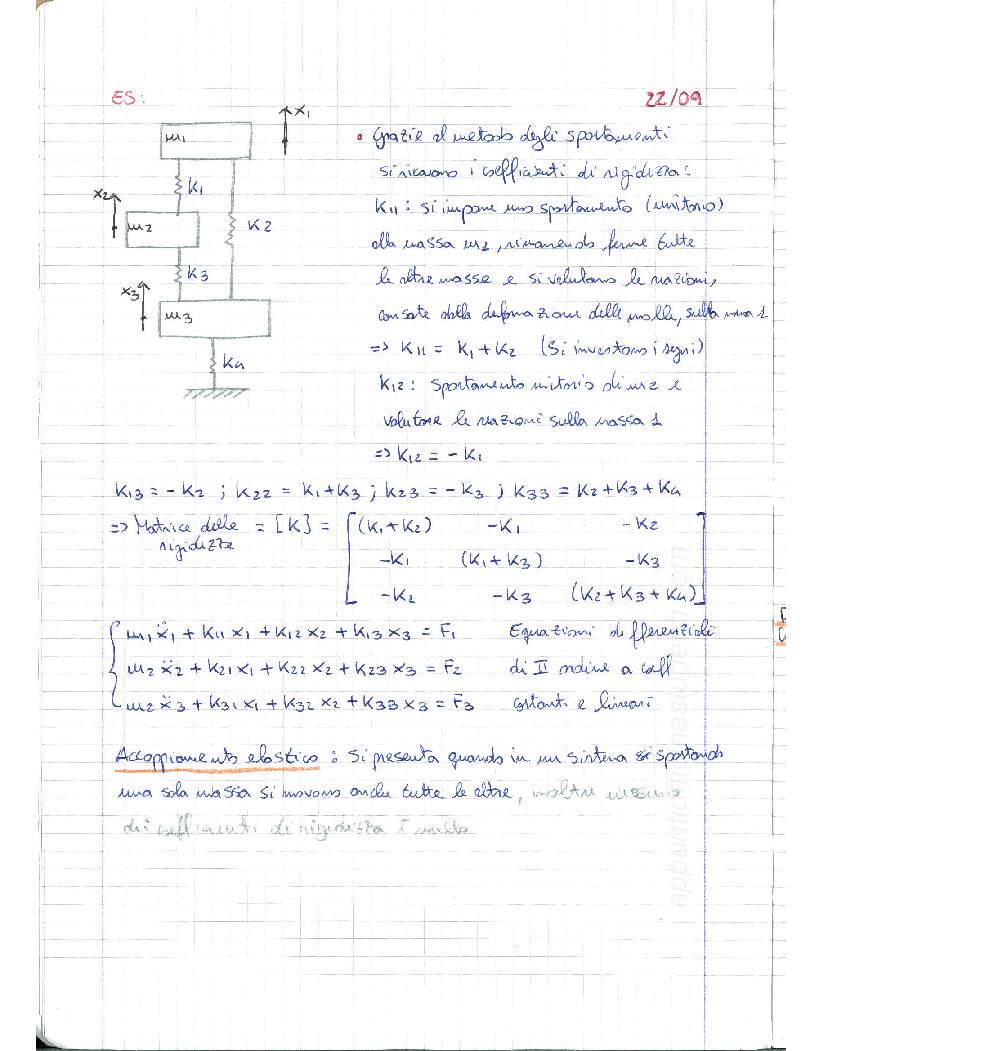 ES:
22/09
m1
x1
K1
x2
m2
K2
K3
x3
m3
K4
• Grazie al metodo degli spostamenti
si ricavano i coefficienti di rigidezza:
K11 : si impone uno spostamento (unitario)
alla massa m1, rimanendo ferme tutte
le altre masse e si valutano le reazioni,
causate dalla deformazione delle molle, sulla massa 1
=> K11 = K1 + K2 (Si invertono i segni)
K12 : Spostamento unitario di m2 e
valutare le reazioni sulla massa 1
=> K12 = - K1
K13 = - K2 ; K22 = K1 + K3 ; K23 = - K3 ; K33 = K2 + K3 + K4
=> Matrice delle rigidezze = [K] = [ (K1 + K2) -K1 -K2
-K1 (K1 + K3) -K3
-K2 -K3 (K2 + K3 + K4) ]
m1 ẍ1 + K11 x1 + K12 x2 + K13 x3 = F1 Equazioni differenziali
m2 ẍ2 + K21 x1 + K22 x2 + K23 x3 = F2 di II ordine a coeff
m2 ẍ3 + K31 x1 + K32 x2 + K33 x3 = F3 costanti e lineari
Accoppiamento elastico : Si presenta quando in un sistema spostando
una sola massa si muovono anche tutte le altre, inoltre nessuno
dei coefficienti di rigidezza è nullo